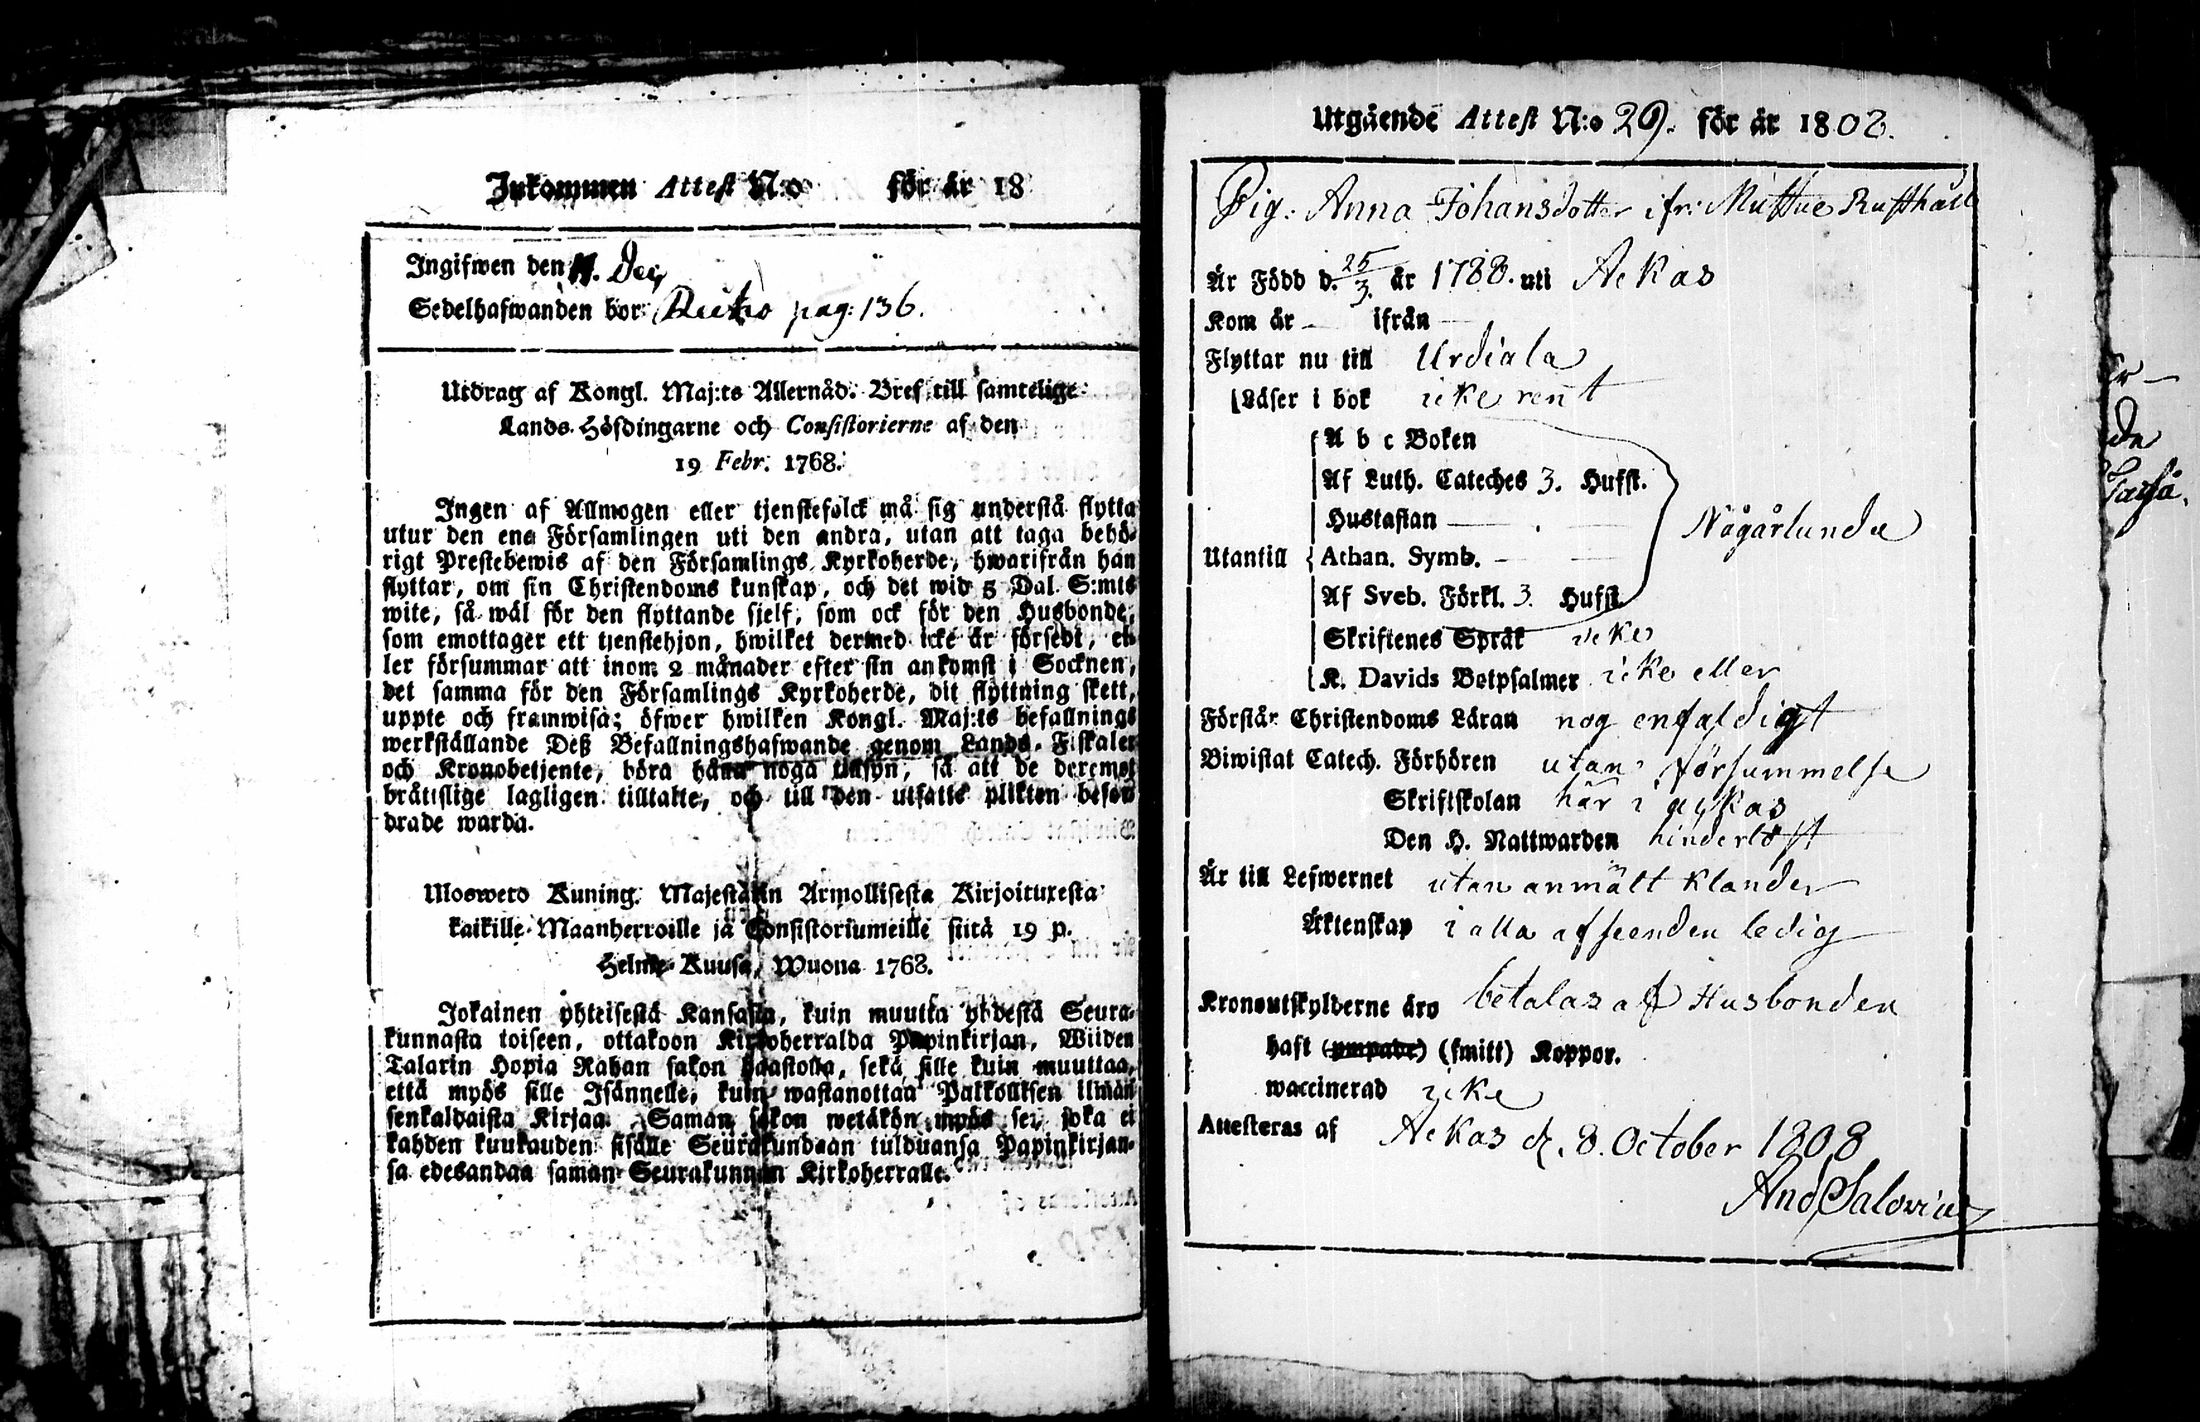 Inkommen Attest N:o för år 18
Ingifwen den 11. Dec
Sedelhafwanden bor: Rucko pag: 136.
Utdrag af Kongl. Maj:ts Allernåd. Bref till samtelige
Lands-Höfdingarne och Consistorierne af den
19 Febr. 1768.
Ingen af Allmogen eller tjenstefolck må sig understå flytta
utur den ena Församlingen uti den andra, utan att taga behö-
rigt Prestebewis af den Församlings Kyrkoherde, hwarifrån han
flyttar, om sin Christendoms kunskap, och det wid 5 Dal. S:mts
wite, så wäl för den flyttande sjelf, som ock för den Husbonde,
som emottager ett tjenstehjon, hwilket dermed icke är försedt, el-
ler försummar att inom 2 månader efter sin ankomst i Socknen,
det samma för den Församlings Kyrkoherde, dit flyttning skett,
uppte och framwisa; öfwer hwilken Kongl. Maj:ts befallnings
werkställande Deß Befallningshafwande genom Lands-Fiskaler
och Kronobetjente, böra hafwa noga tillsyn, så att de deremot
bråttslige lagligen tilltalte, och till den utsatte plikten befor-
drade warda.
Uloswero Kuning. Majestätin Armollisesta Kirjoituxesta
kaikille Maanherroille ja Consistoriumeille siitä 19 p.
Helme-Kuusa, Wuona 1768.
Jokainen yhteisestä Kansasta, kuin muutta yhdestä Seura-
kunnasta toiseen, ottakoon Kirkoherralda Papinkirjan, Wiiden
Talarin Hopia Rahan sakon haastolla, sekä sille kuin muuttaa,
että myös sille Isännelle, kuin wastanottaa Palkollisen ilman
senkaldaista Kirjaa. Saman sakon wetäkön myös se, joka ei
kahden kuukauden sisälle Seurakundaan tulduansa Papinkirjan-
sa edesandaa saman Seurakunnan Kirkoherralle.
Utgående Attest N:o 29. för år 1808.
Pig. Anna Johansdotter ifr: Muttue Rusthåll
Är Född d. 25/3. år 1788. uti Ackas
Kom år — ifrån —
Flyttar nu till Urdiala
Läser i bok icke rent
A b c Boken
Af Luth. Cateches 3. Hufst.
Hustaflan —
Utantill Athan. Symb. — Någårlunda
Af Sveb. Förkl. 3. Hufst.
Skriftenes Språk icke
K. Davids Botpsalmer icke eller
Förstår Christendoms Läran nog enfaldigt
Biwistat Catech. Förhören utan försummelse
Skriftskolan här i ackas
Den H. Nattwarden hinderlöst
Är till Lefwernet utan anmält klander
Äktenskap i alla afseenden ledig
Kronoutskylderne äro betalas af Husbonden
haft (ympade) (smitt) Koppor.
waccinerad icke
Attesteras af Ackas d. 8. October 1808
And Salovius